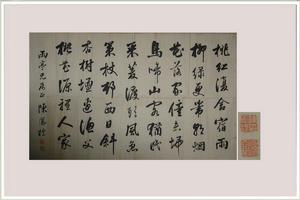 桃紅復含宿雨
柳綠更帶朝烟
花落家僮未掃
鳥啼山客猶眠
采菱渡頭風急
策杖邨西日斜
杏樹壇邊漁父
桃花源裡人家
雨亭兄 正 陳